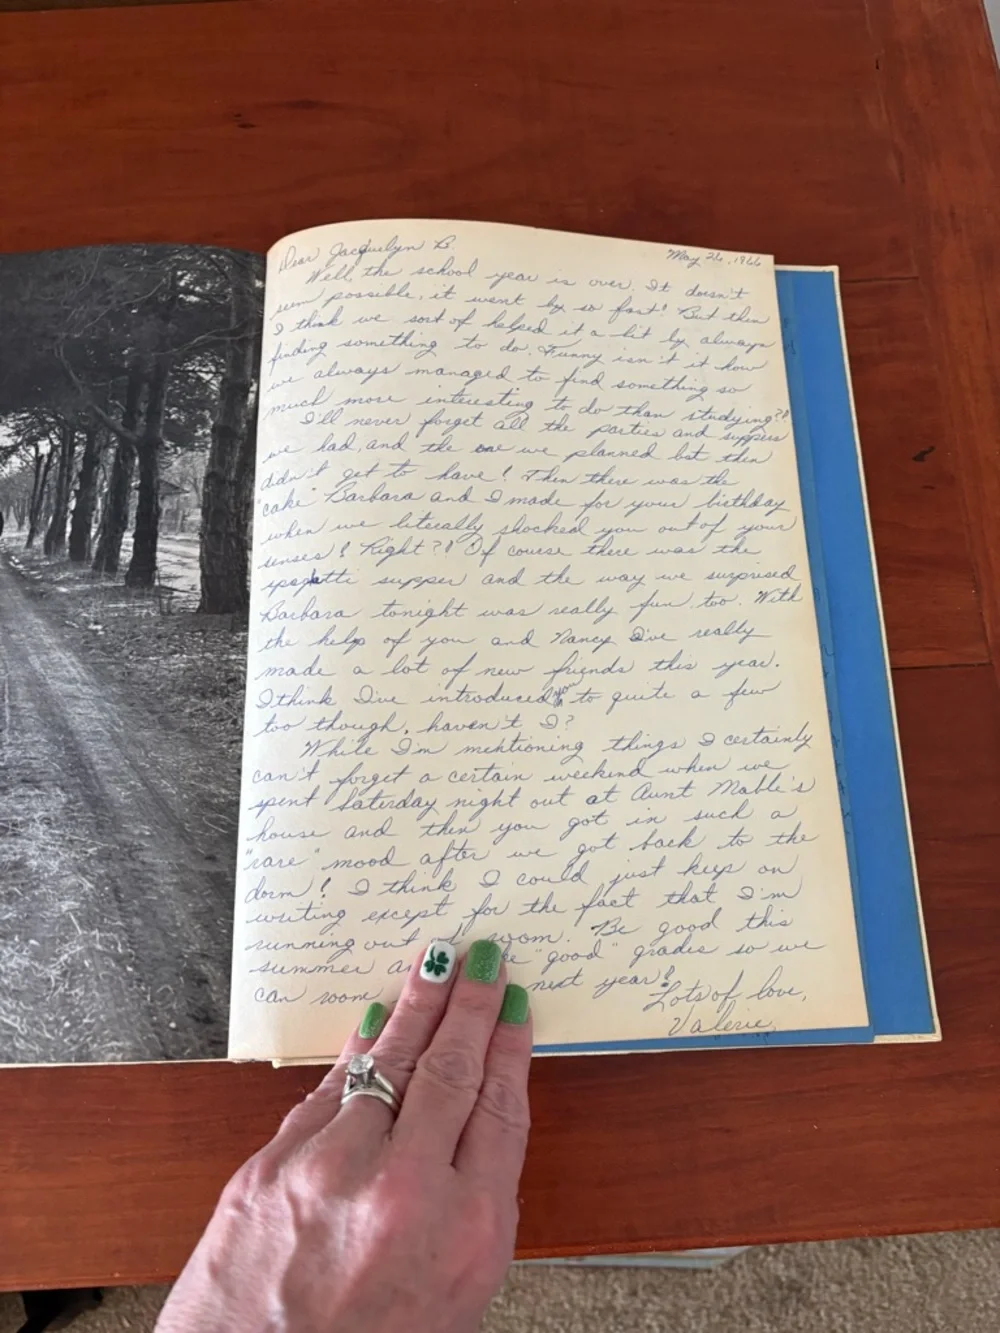 Dear Jacquelyn B.
May 26, 1966
Well, the school year is over. It doesn't
seem possible, it went by so fast! But then
I think we sort of helped it a bit by always
finding something to do. Funny isn't it how
we always managed to find something so
much more interesting to do than studying?!
I'll never forget all the parties and suppers
we had, and the one we planned but then
didn't get to have! Then there was the
"cake" Barbara and I made for your birthday
when we literally shocked you out of your
senses! Right?! Of course there was the
spagetti supper and the way we surprised
Barbara tonight was really fun, too. With
the help of you and Nancy I've really
made a lot of new friends this year.
I think I've introduced you to quite a few
too though, haven't I?
While I'm mentioning things I certainly
can't forget a certain weekend when we
spent Saturday night out at Aunt Mable's
house and then you got in such a
"rare" mood after we got back to the
dorm! I think I could just keep on
writing except for the fact that I'm
running out room. Be good this
summer "good" grades so we
can room next year!
Lots of love,
Valerie